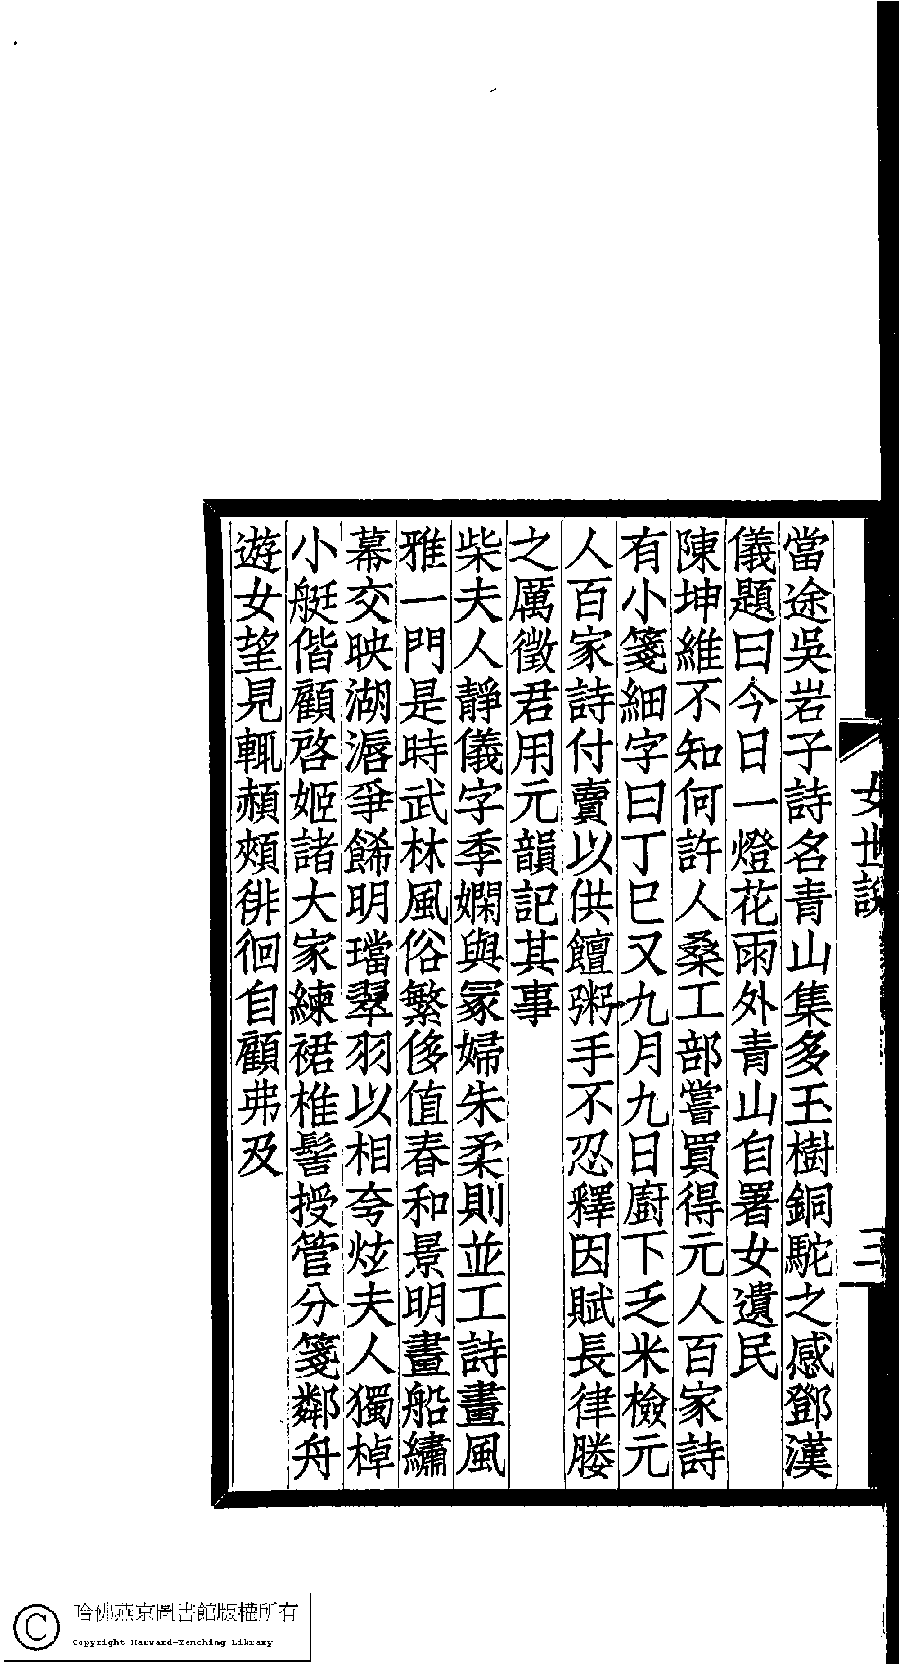 女世說
三
當途吳岩子詩名青山集多玉樹銅駝之感鄧漢
儀題曰今日一燈花雨外青山自署女遺民
陳坤維不知何許人桑工部嘗買得元人百家詩
有小箋細字曰丁巳又九月九日廚下乏米檢元
人百家詩付賣以供饘粥手不忍釋因賦長律媵
之厲徵君用元韻記其事
柴夫人靜儀字季嫻與冢婦朱柔則並工詩畫風
雅一門是時武林風俗繁侈值春和景明畫船繡
幕交映湖漘爭餙明璫翠羽以相夸炫夫人獨棹
小艇偕顧啓姬諸大家練裙椎髻授管分箋鄰舟
遊女望見輒頳頰徘徊自顧弗及
哈佛燕京圖書館版權所有
Copyright Harvard-Yenching Library